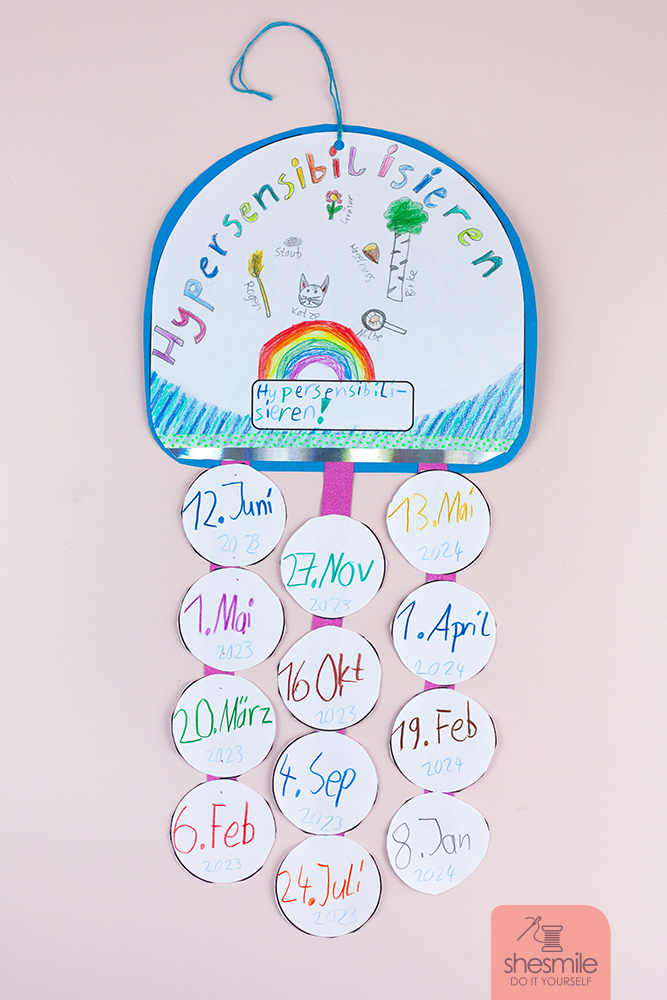 Hypersensibilisieren
Gräser
Staub
Haselnuss
Birke
Roggen
Katze
Milbe
Hypersensibili-
sieren!
12. Juni
2023
1. Mai
2023
20. März
2023
6. Feb
2023
27. Nov
2023
16 Okt
2023
4. Sep
2023
24. Juli
2023
13. Mai
2024
1. April
2024
19. Feb
2024
8. Jan
2024
shesmile
DO IT YOURSELF